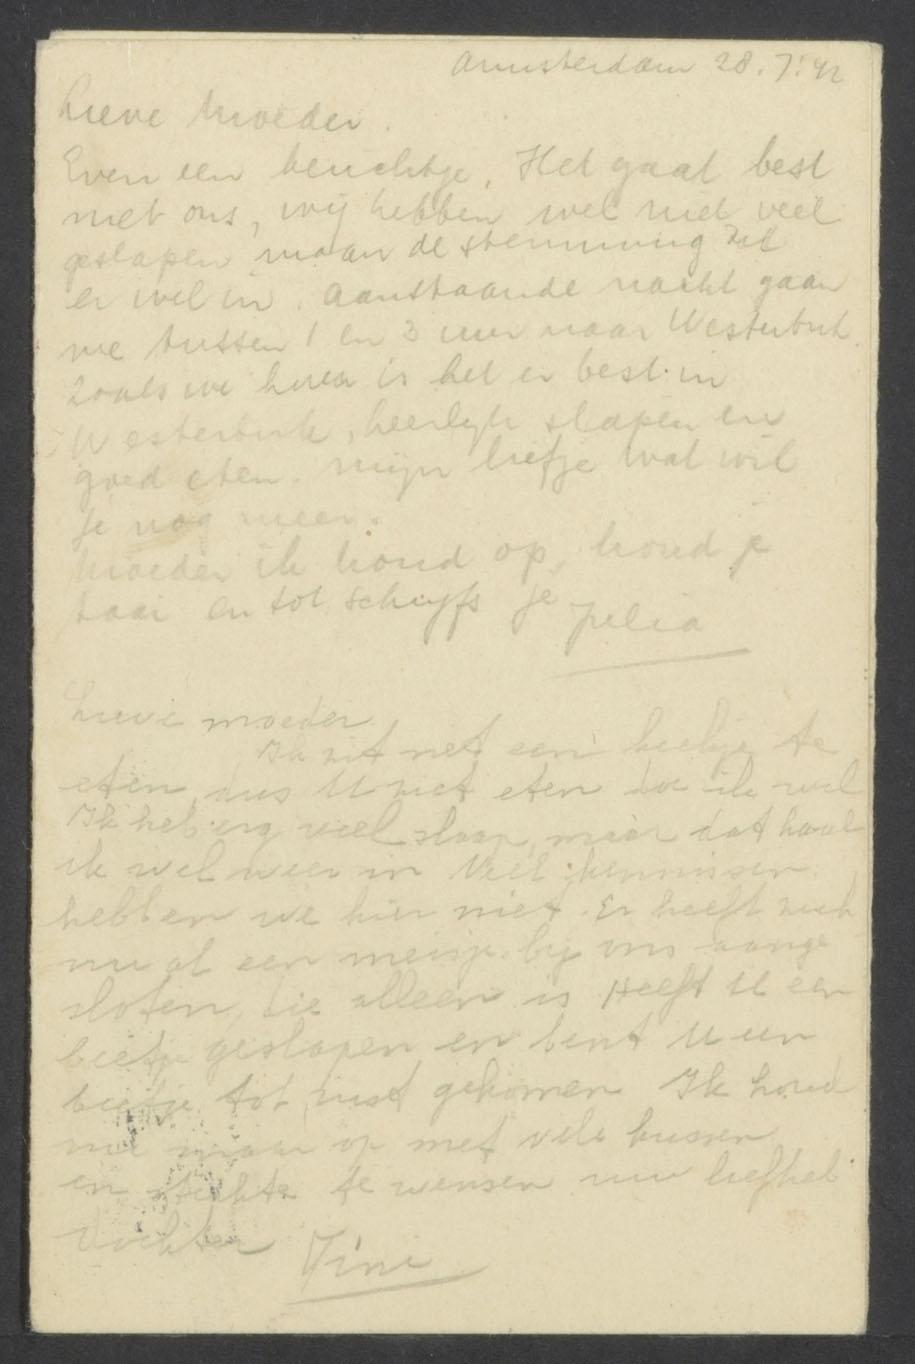 Amsterdam 28.7.'42
Lieve Moeder.
Even een berichtje. Het gaat best
met ons, wij hebben wel niet veel
geslapen maar de stemming zit
er wel in. Aanstaande nacht gaan
we tussen 1 en 3 uur naar Westerbork.
Zoals we horen is het er best in
Westerbork, heerlijk slapen en
goed eten. Mijn liefje wat wil
je nog meer.
Moeder ik houd op, houd je
taai en tot schrijfs je
Lieve moeder
Ik zit net een beetje te
eten, dus U niet eten doe ik wel
Ik heb erg veel slaap, maar dat haal
ik wel weer in Veel kennissen
hebben we hier niet. Er heeft zich
nu al een meisje bij ons aange
sloten, die alleen is Heeft U een
beetje geslapen en bent U een
beetje tot rust gekomen Ik houd
nu maar op met vele kussen
en sterkte te wensen uw liefheb
dochter